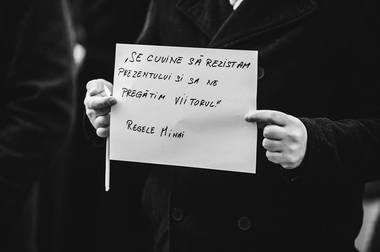 „SE CUVINE SĂ REZISTAM
PREZENTULUI ȘI SA NE
PREGĂTIM VIITORUL."
REGELE MIHAI